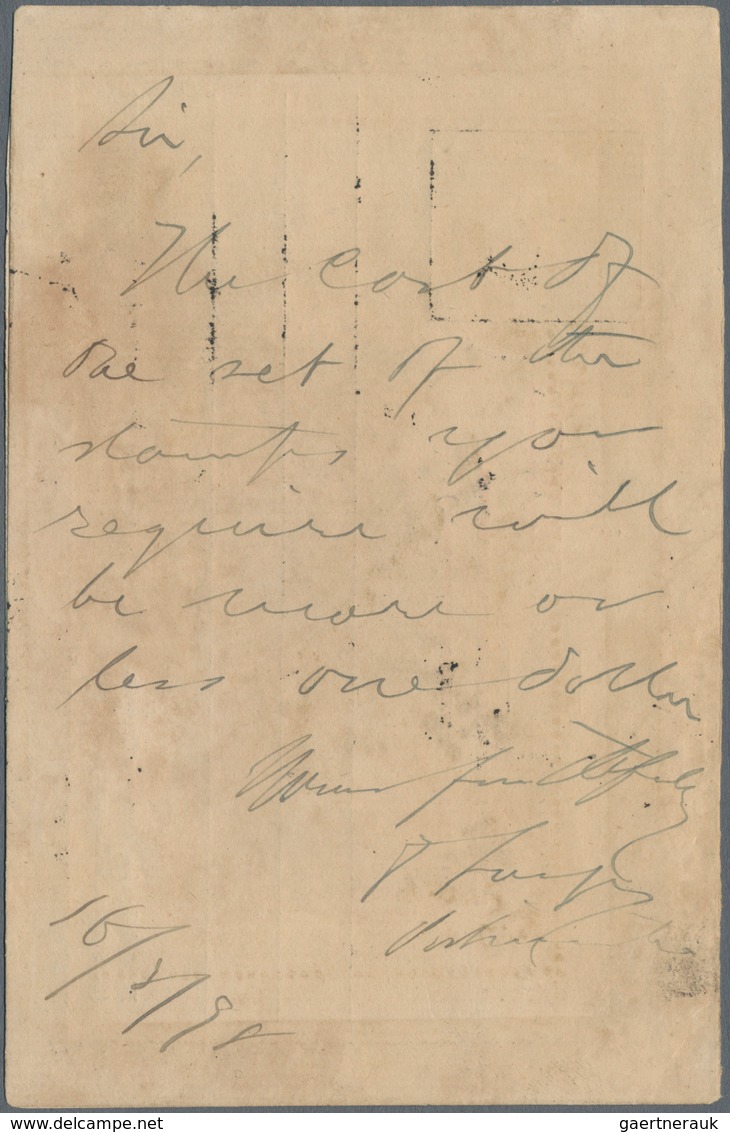 Sir,
The cost of
one set of the
stamps you
require will
be more or
less one dollar
Yours faithfully
16/ /92
gaertnerauk